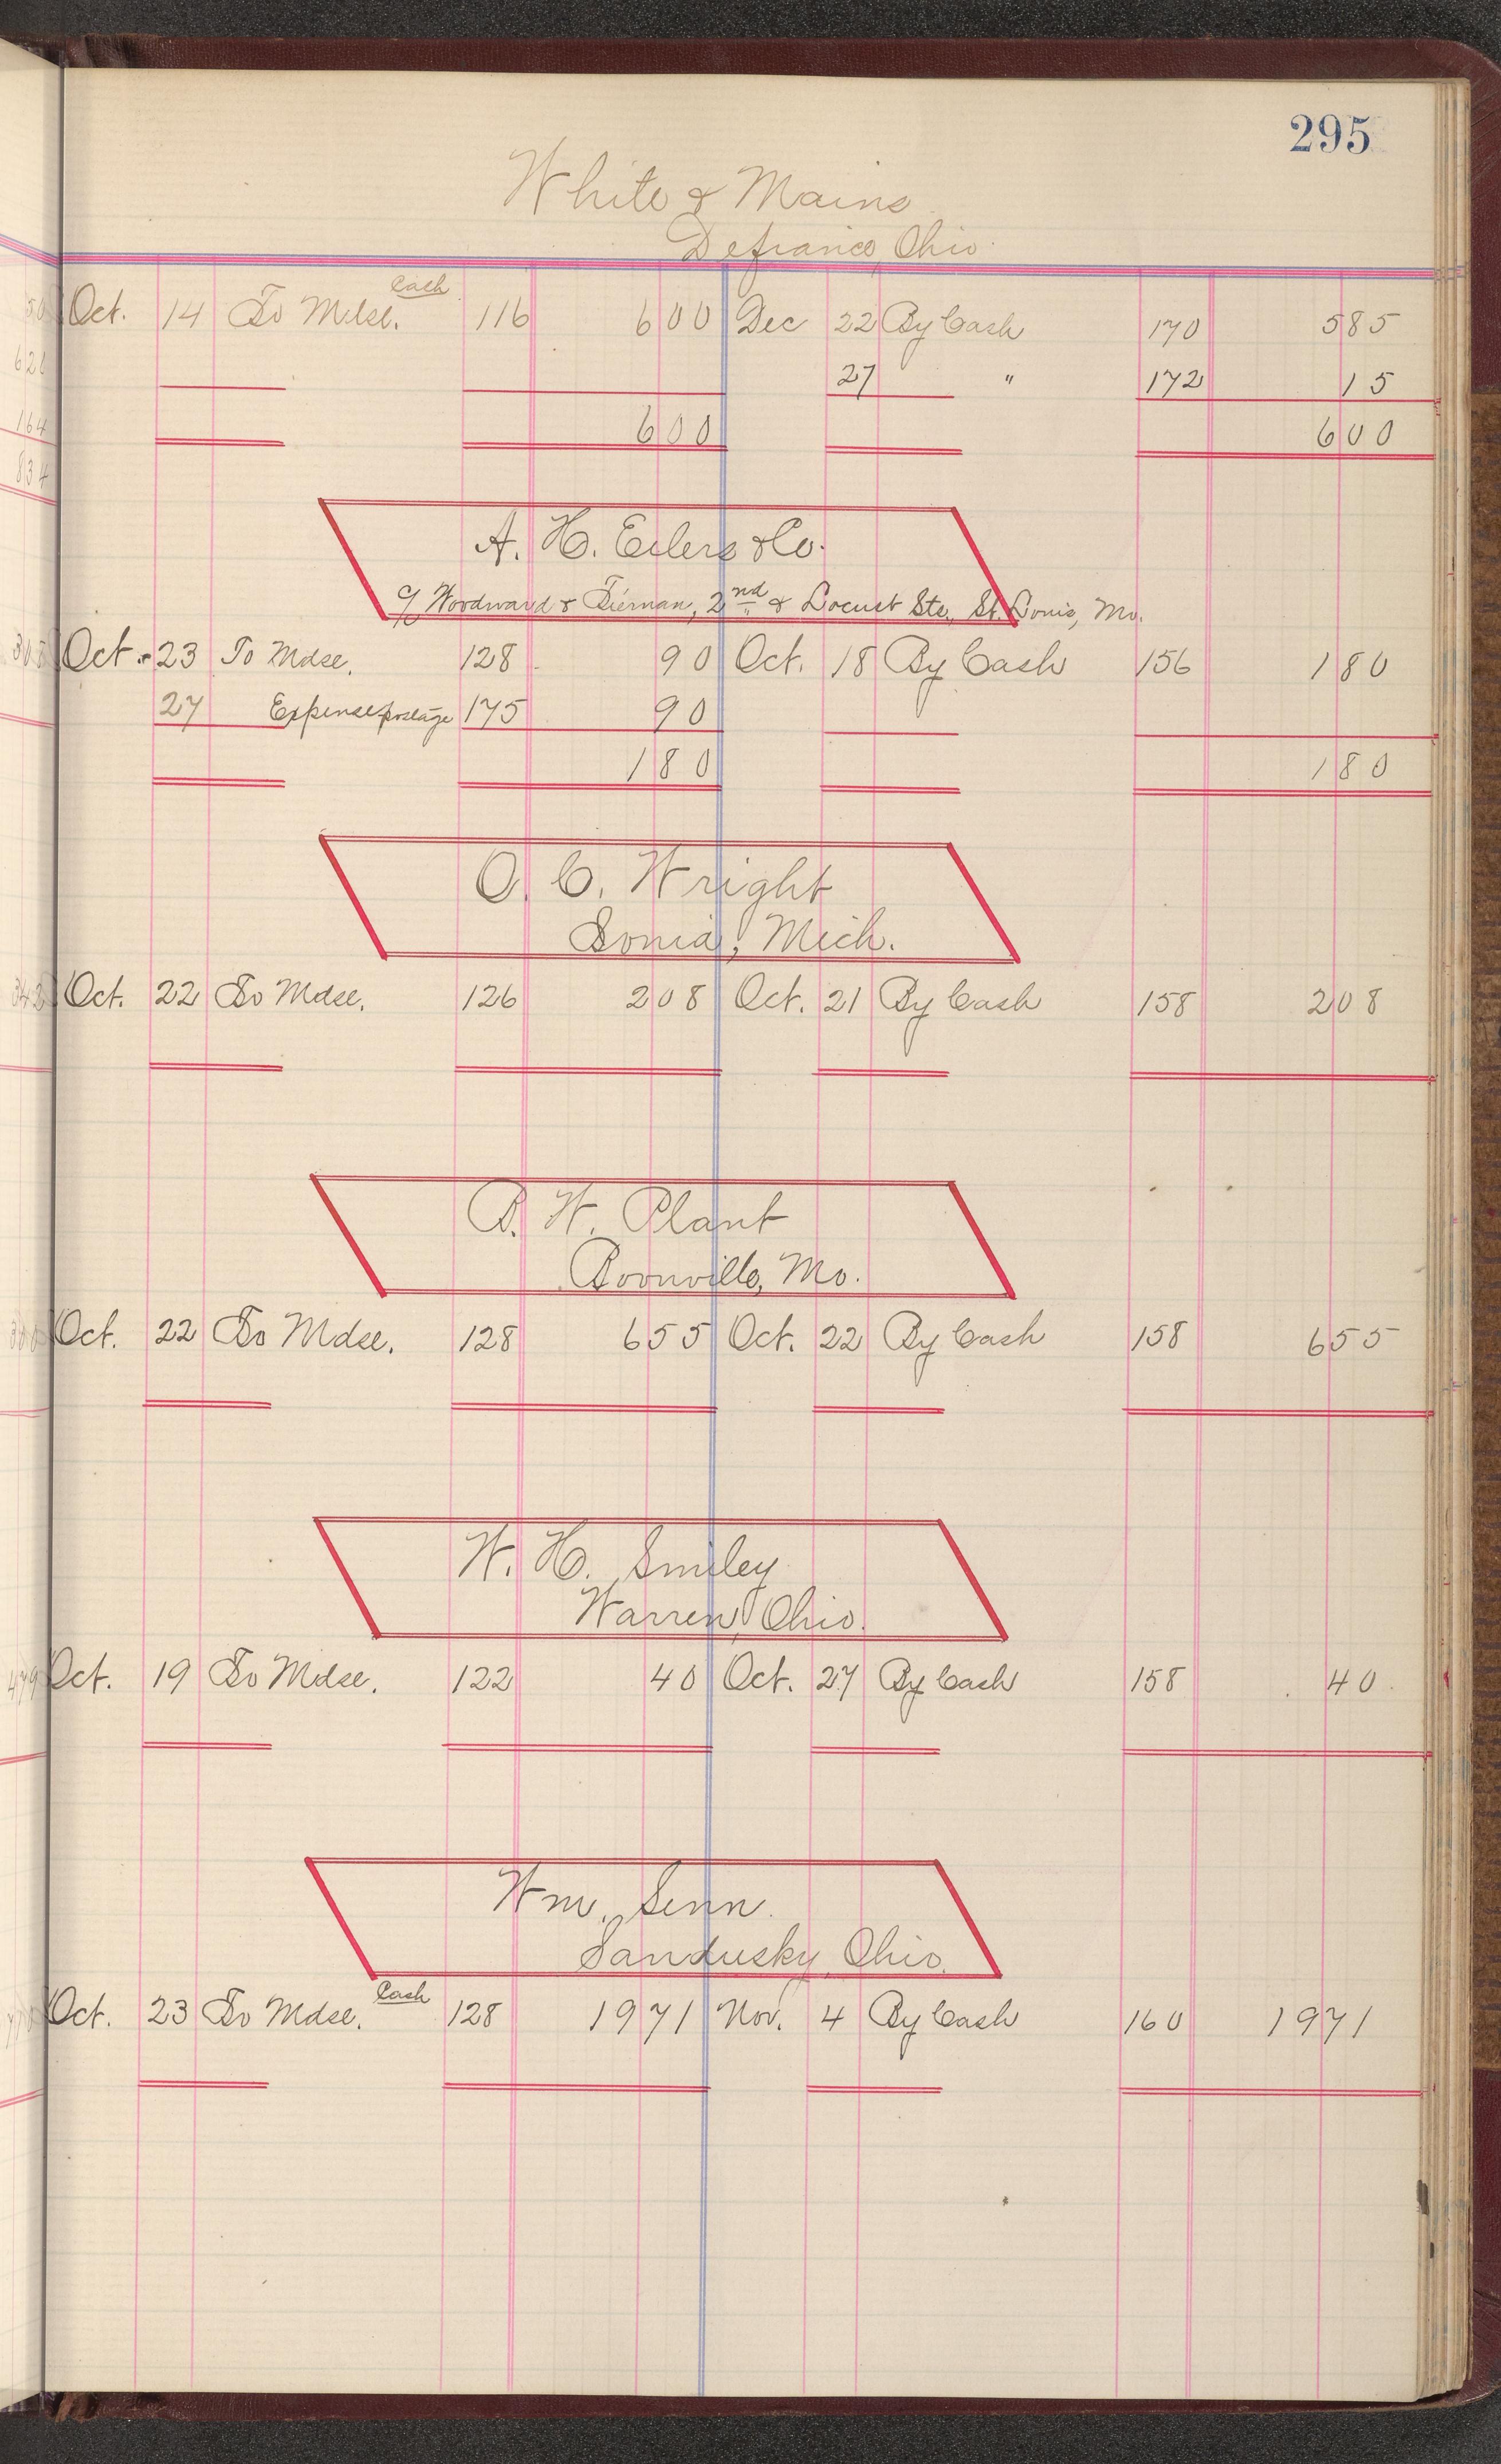 295
White & Mains
Defiance, Ohio
Cash
Oct. 14 To Mdse. 116 6 00 Dec 22 By Cash 170 5 85
27 " 172 15
6 00 6 00
A. H. Eilers & Co.
c/ Woodward & Tiernan, 2nd & Locust Sts., St. Louis, Mo.
Oct. 23 To Mdse. 128 90 Oct. 18 By Cash 156 1 80
27 Expense postage 175 90
1 80 1 80
O. C. Wright
Ionia, Mich.
Oct. 22 To Mdse. 126 2 08 Oct. 21 By Cash 158 2 08
B. W. Plant
Boonville, Mo.
Oct. 22 To Mdse. 128 6 55 Oct. 22 By Cash 158 6 55
W. H. Smiley
Warren, Ohio.
Oct. 19 To Mdse. 122 40 Oct. 27 By Cash 158 40
Wm. Senn
Sandusky, Ohio.
Cash
Oct. 23 To Mdse. 128 19 71 Nov. 4 By Cash 160 19 71